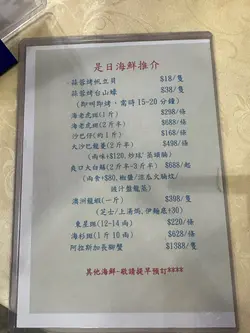 是日海鮮推介
蒜蓉烤帆立貝 $18/隻
蒜蓉烤台山蠔 $38/隻
(即叫即烤，需時 15-20 分鐘)
海老虎斑(1斤) $298/條
海老虎斑(2斤半) $688/條
沙巴仔(約1斤) $168/條
大沙巴龍躉(2斤半) $498/條
(兩味+$120, 炒球/蒸頭腩)
爽口大白鱔(2斤半-3斤半) $688/起
(兩食+$80, 椒鹽/涼瓜火腩炆
豉汁盤龍蒸)
澳洲龍蝦(一斤) $398/隻
(芝士/上湯焗, 伊麵底+$30)
東星斑(12-14兩) $220/條
海杉斑(1斤10兩) $628/條
阿拉斯加長腳蟹 $1388/隻
其他海鮮-敬請提早預訂****